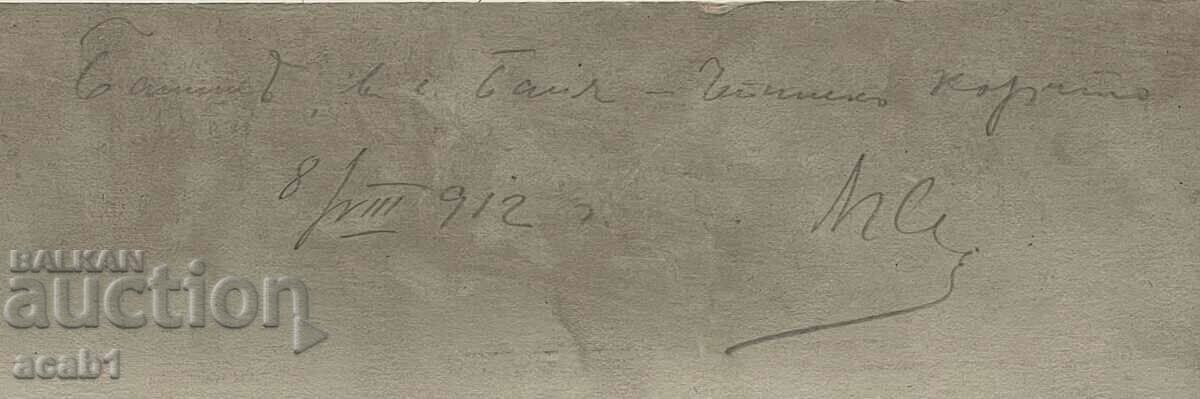 Банитѣ, в с. Баня – Чепинско корито
8/VIII 912 г.
BALKAN
auction
acab1